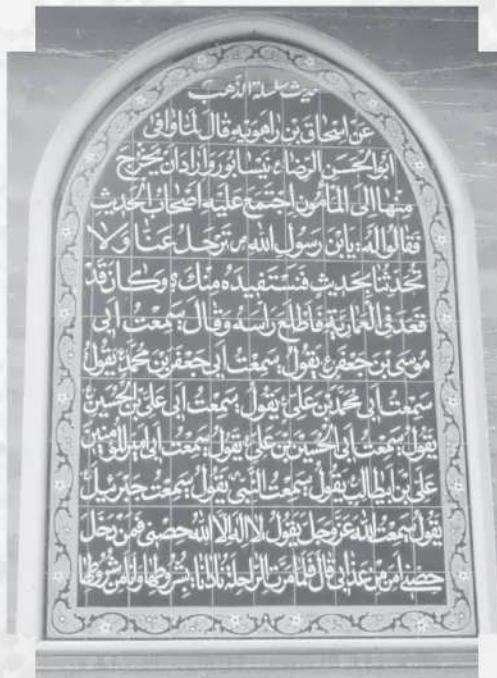 حديث سلسلة الذهب
عن اسحاق بن راهويه قال لما وافى
ابو الحسن الرضاء نيسابور واراد ان يخرج
منها الى المأمون اجتمع عليه اصحاب الحديث
فقالوا له: يابن رسول الله ترحل عنا ولا
تحدثنا بحديث فنستفيده منك؟ وكان قد
قعد في العمارية فأطلع رأسه وقال: سمعت ابى
موسى بن جعفر يقول: سمعت ابى جعفر بن محمد يقول
سمعت ابى محمد بن على يقول: سمعت ابى على بن الحسين
يقول: سمعت ابى الحسين بن على يقول: سمعت ابى امير المؤمنين
على بن ابيطالب يقول: سمعت النبى يقول: سمعت جبرئيل
يقول سمعت الله عز وجل يقول: لا اله الا الله حصنى فمن دخل
حصنى امن من عذابى قال فلما مرت الراحلة نادانا: بشروطها وانا من شروطها